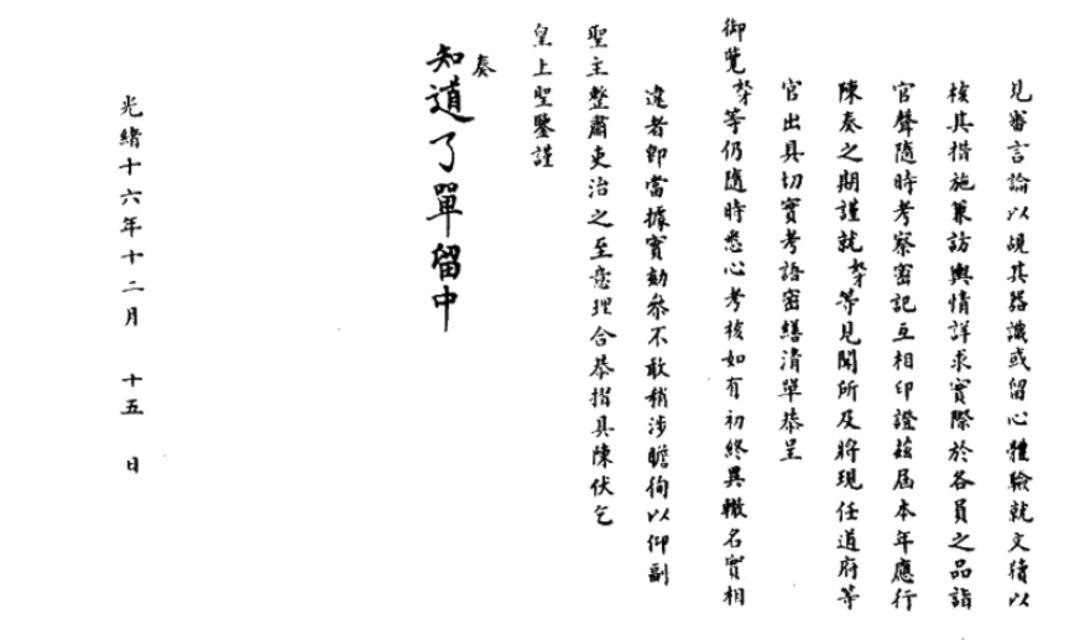 見審言論以覘其器識或留心體驗就文牘以
核其措施兼訪輿情詳求實際於各員之品詣
官聲隨時考察密記互相印證茲屆本年應行
陳奏之期謹就奴才等見聞所及將現任道府等
官出具切實考語密繕清單恭呈
御覽奴才等仍隨時悉心考核如有初終異轍名實相
違者卽當據實劾參不敢稍涉瞻徇以仰副
聖主整肅吏治之至意理合恭摺具陳伏乞
皇上聖鑒謹
奏
知道了單留中
光緒十六年十二月 十五 日